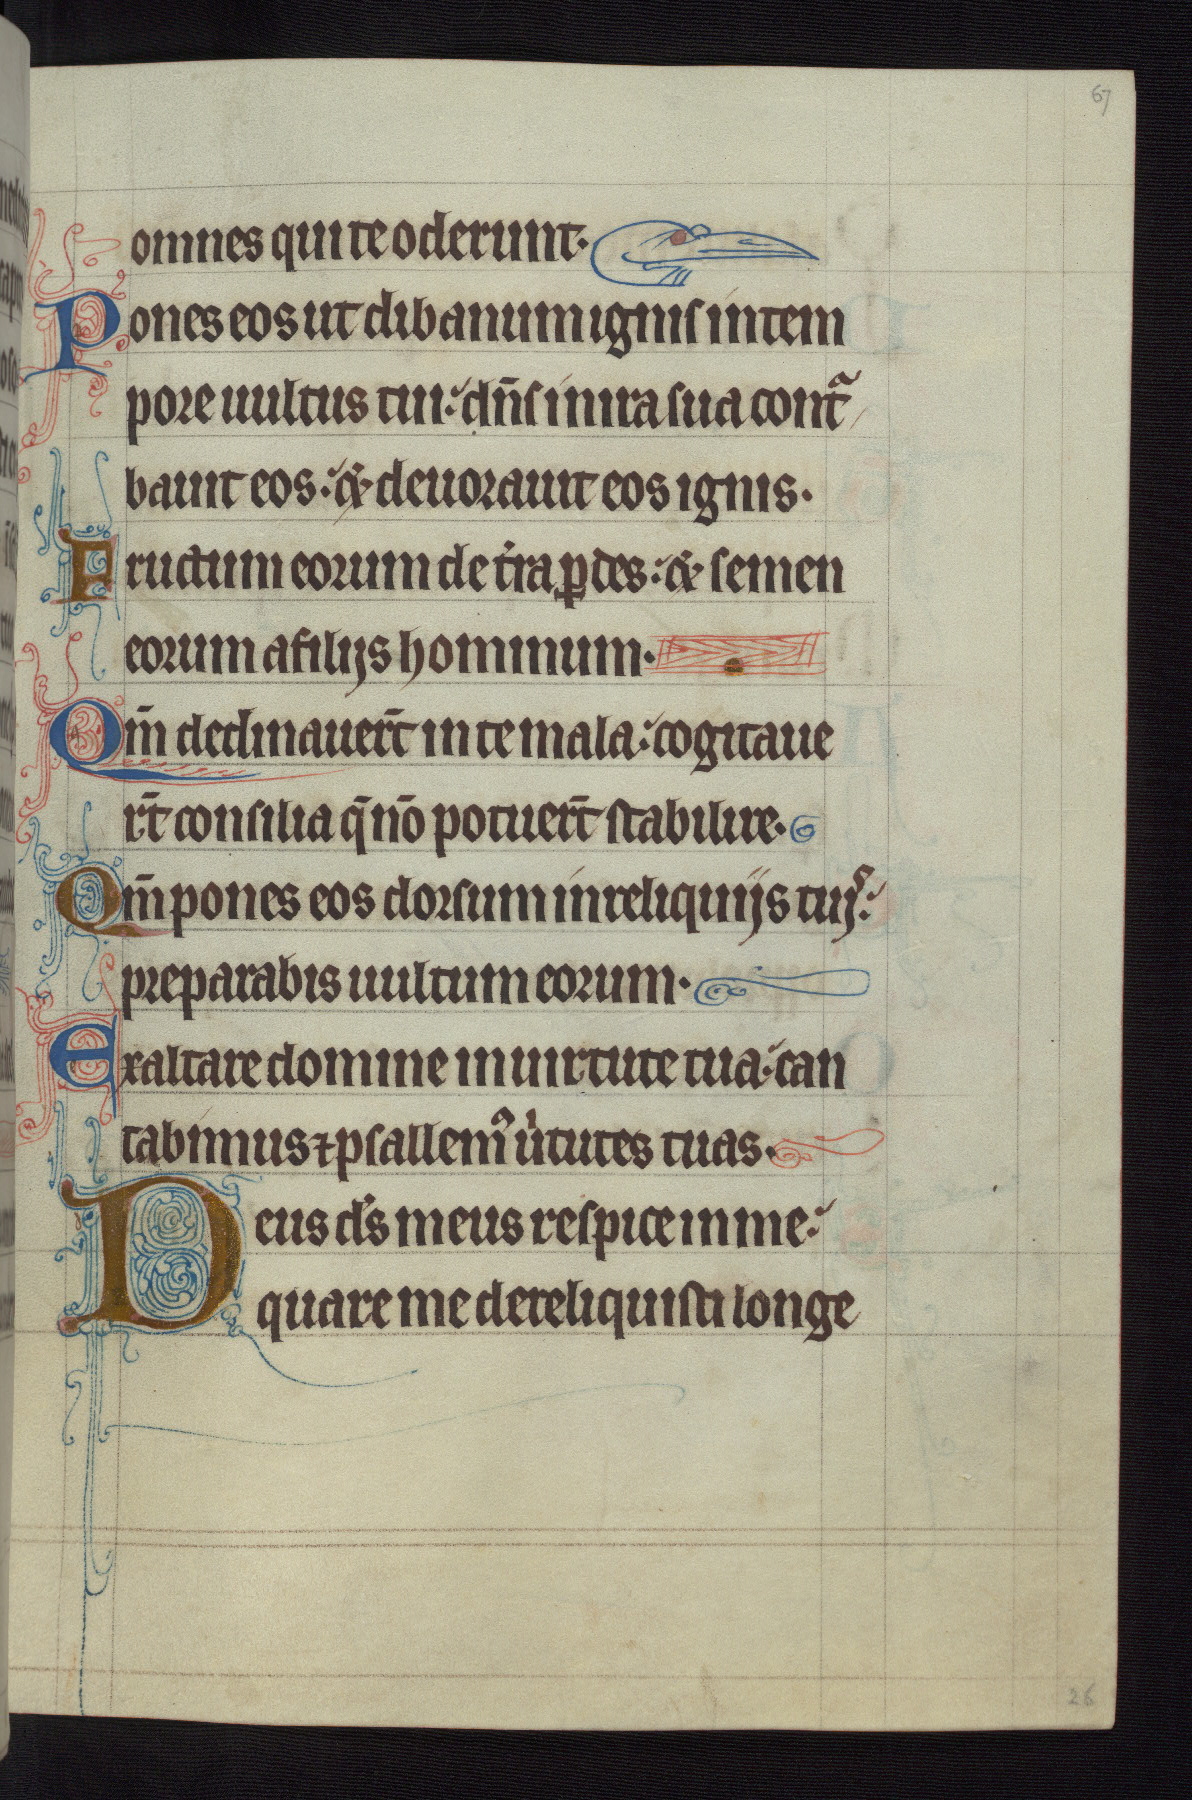 67
omnes qui te oderunt·
Pones eos ut clibanum ignis in tem
pore uultus tui: dn̄s in ira sua contᵃ
bauit eos: & deuorauit eos ignis·
Fructum eorum de t̉ra ꝑdes: & semen
eorum a filijs hominum·
Qm̄ declinauer̄t in te mala: cogitaue
rt̄ consilia q̄ nō potuer̄t stabilire·
Qm̄ pones eos dorsum in reliquijs tuijˢ:
preparabis uultum eorum·
Exaltare domine in uirtute tua: can
tabimus ⁊ psallem᷒ uͥtutes tuas·
Deus ds̄ meus respice in me:
quare me dereliquisti longe
26